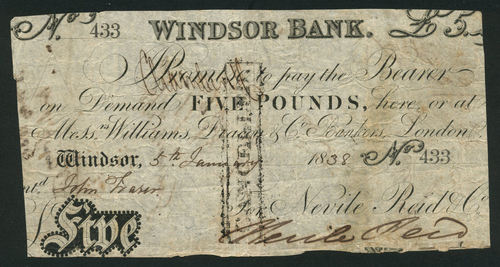 No. 433 WINDSOR BANK. £5.
I Promise to pay the Bearer
on Demand FIVE POUNDS, here, or at
Mess.rs Williams Deacon & Co. Bankers, London.
Windsor, 5th January 1838 No. 433
ent.d John Fraser For Nevile Reid & Co.
Five Nevile Reid